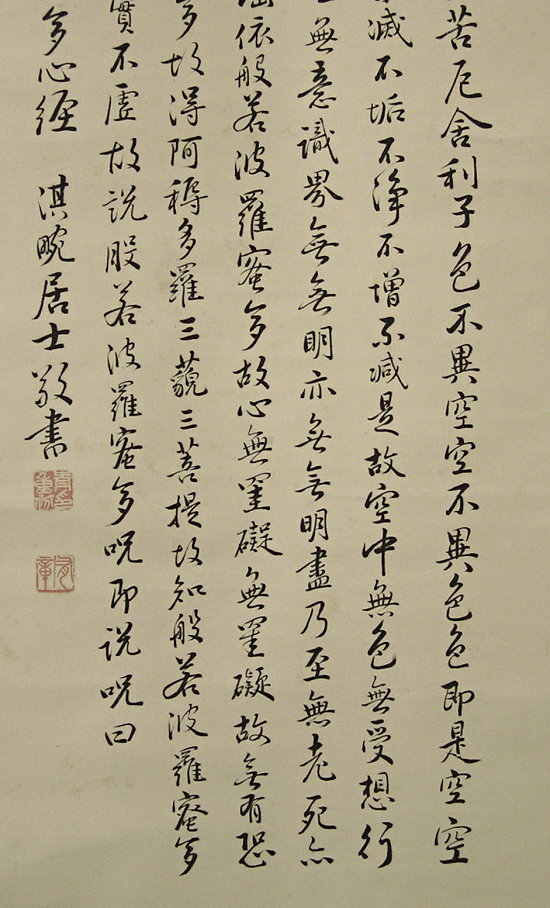 苦厄舍利子色不異空空不異色色即是空空
滅不垢不淨不增不減是故空中無色無受想行
無意識界無無明亦無無明盡乃至無老死亦
依般若波羅蜜多故心無罣礙無罣礙故無有恐
多故得阿耨多羅三藐三菩提故知般若波羅蜜多
實不虛故説般若波羅蜜多呪即説呪曰
多心經 淇畹居士敬書